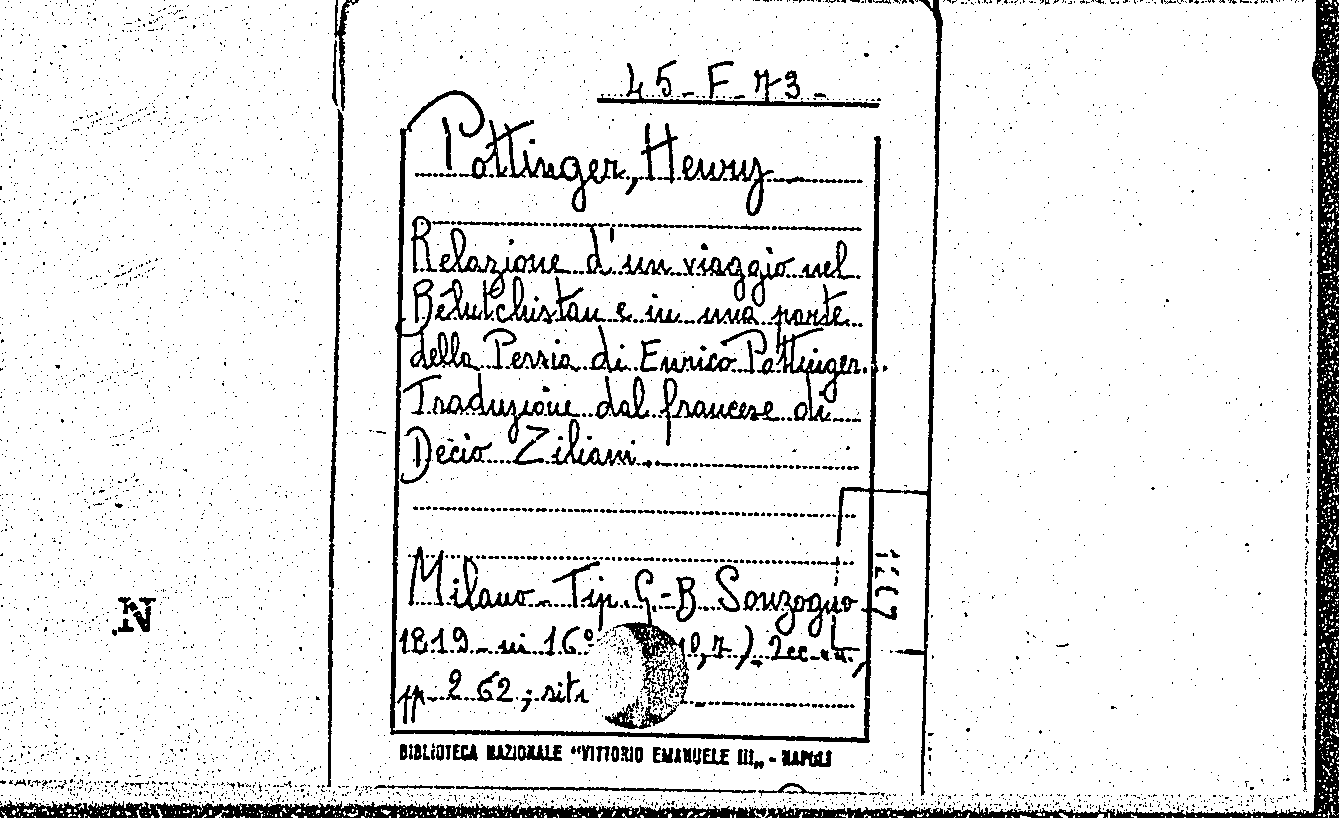 45-F-73-
Pottinger, Henry
Relazione d'un viaggio nel
Bélutchistan e in una parte
della Persia di Enrico Pottinger...
Traduzione dal francese di
Decio Ziliani.
Milano - Tip. G.-B. Sonzogno
1819 - in 16º
pp. 262; ritr
BIBLIOTECA NAZIONALE "VITTORIO EMANUELE III„ - NAPOLI
N